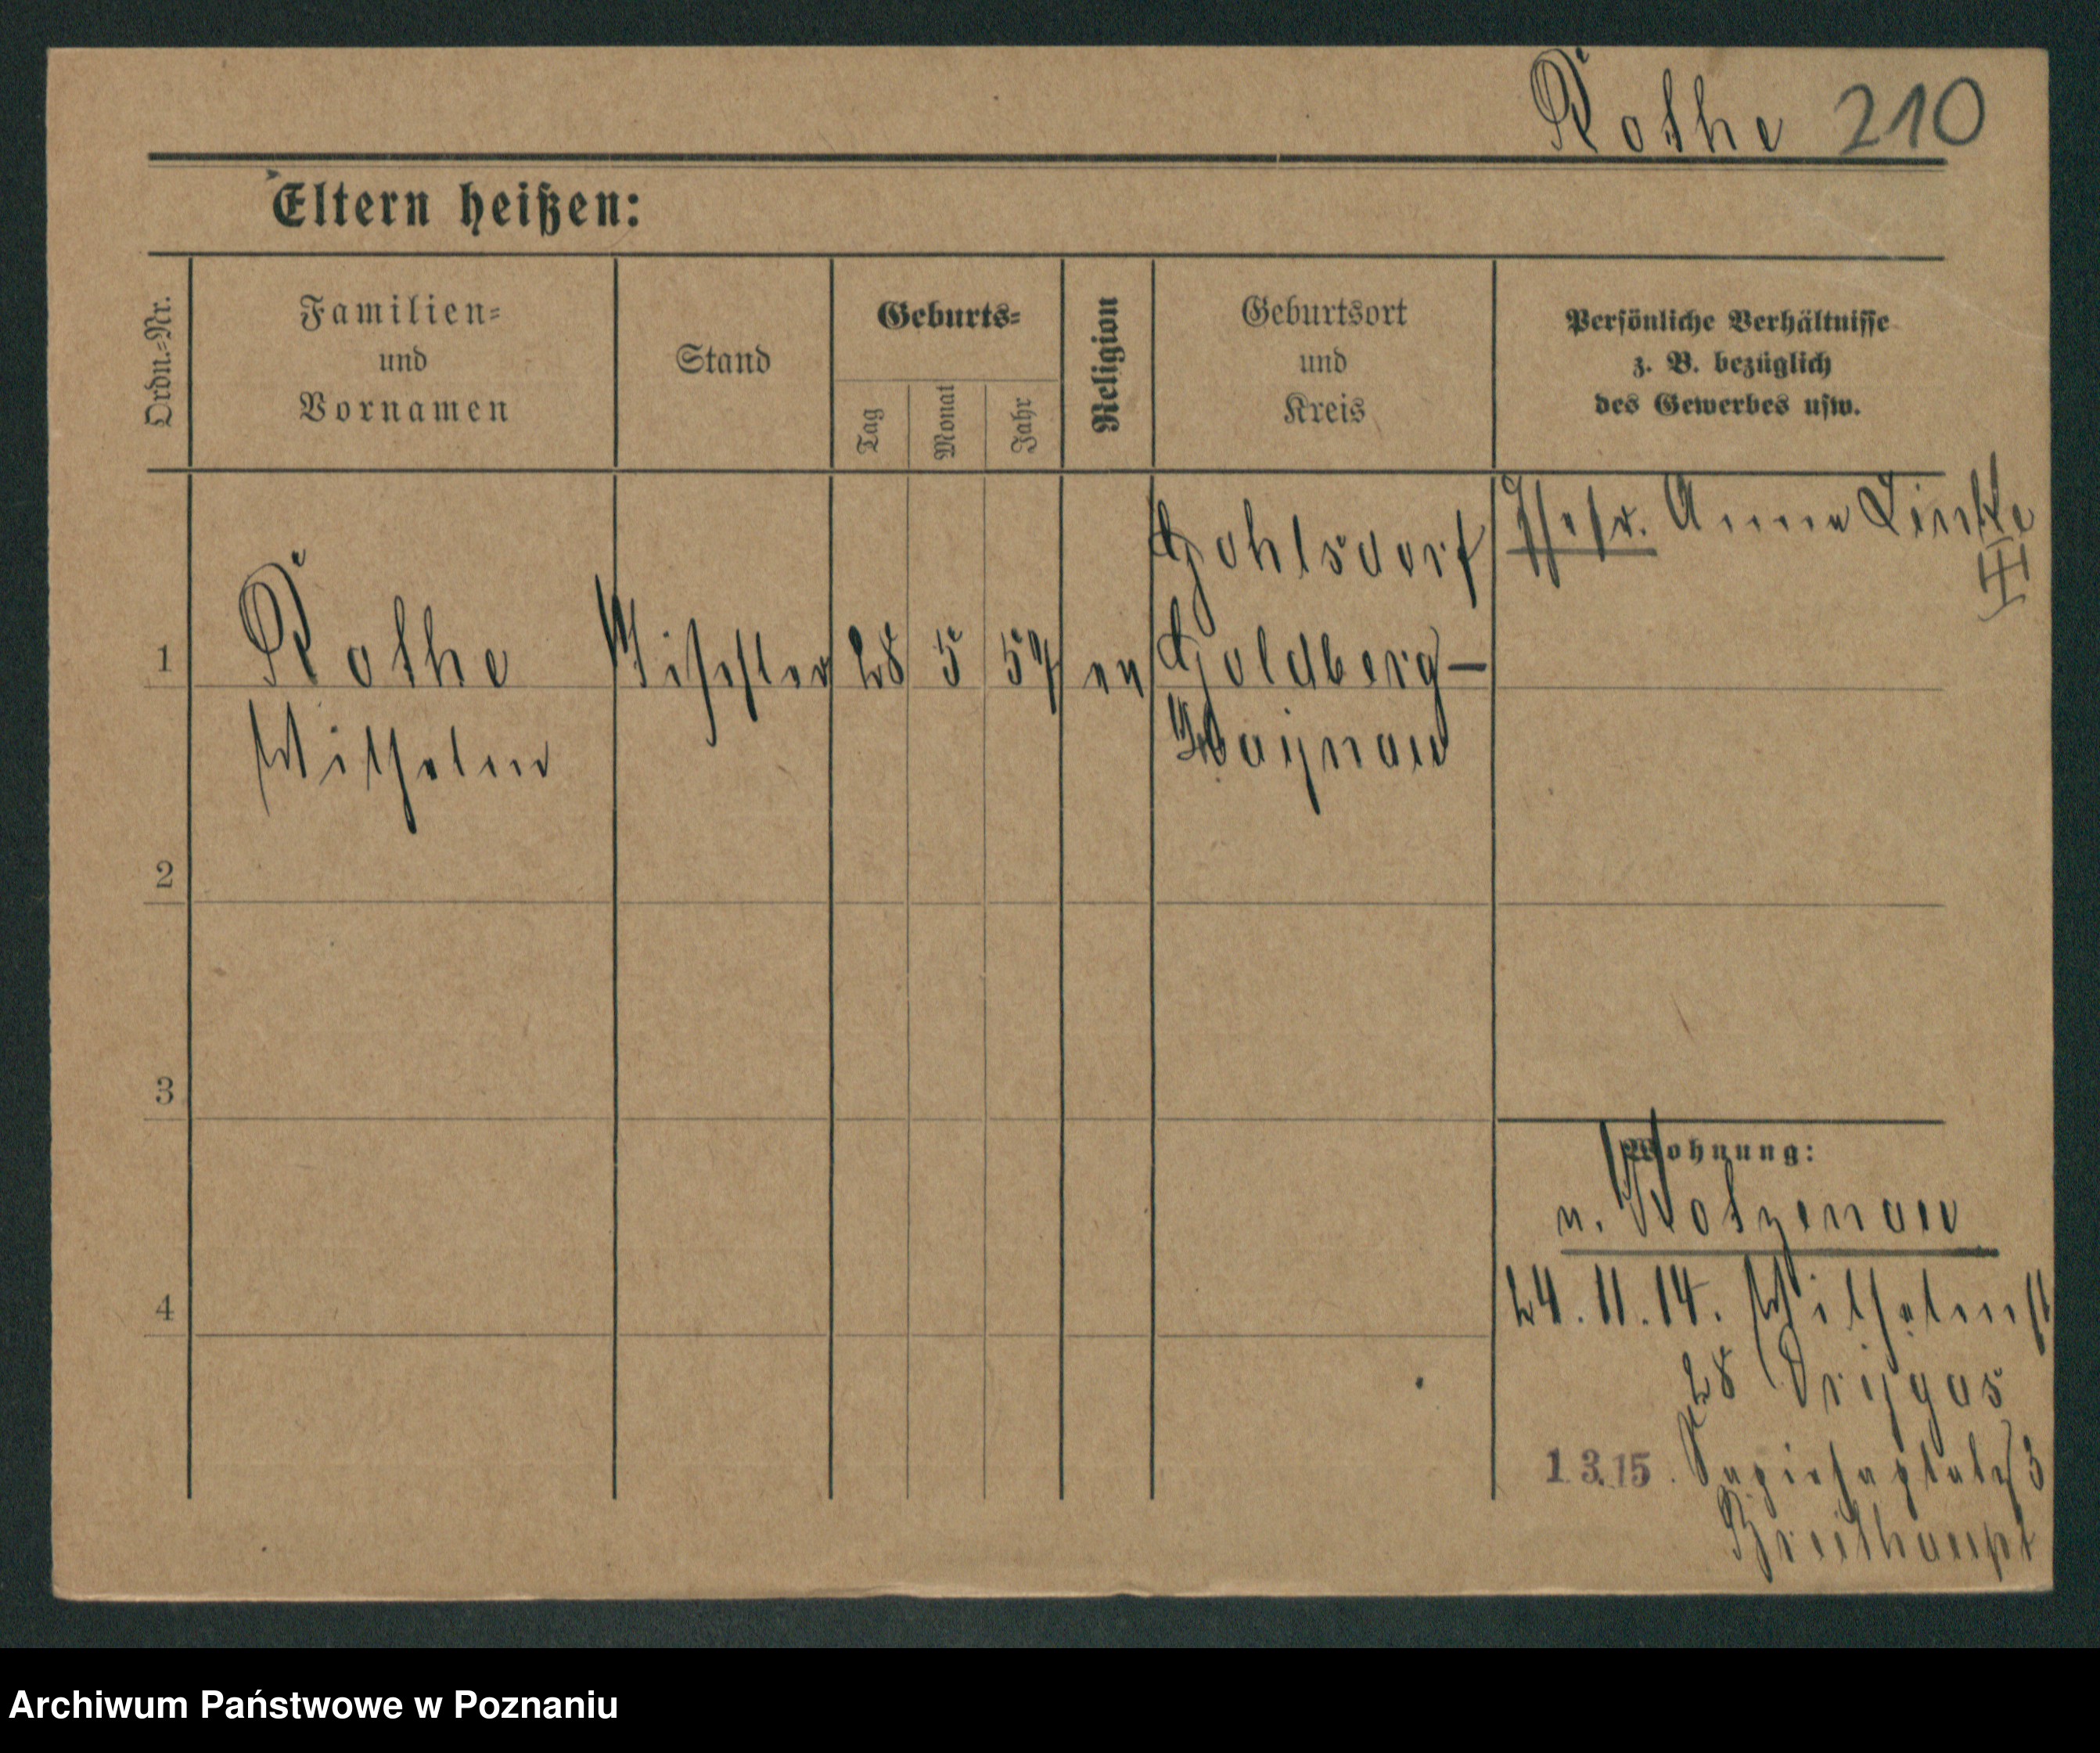 Rothe 210
Eltern heißen:
Ordn.=Nr.
Familien=
und
Vornamen
Stand
Geburts=
Tag
Monat
Jahr
Religion
Geburtsort
und
Kreis
Persönliche Verhältnisse
z. B. bezüglich
des Gewerbes usw.
Ehefr. Anna Linke
Gohlsdorf
1 Rothe Tischler 28 5 57 ev Goldberg-
Wilhelm Haynau
2
3
4
Wohnung:
v. Kotzenau
24.11.14. Wilhelmst
28 Drygas
1.3.15. Sapiehaplatz 3
Breithaupt
Archiwum Państwowe w Poznaniu